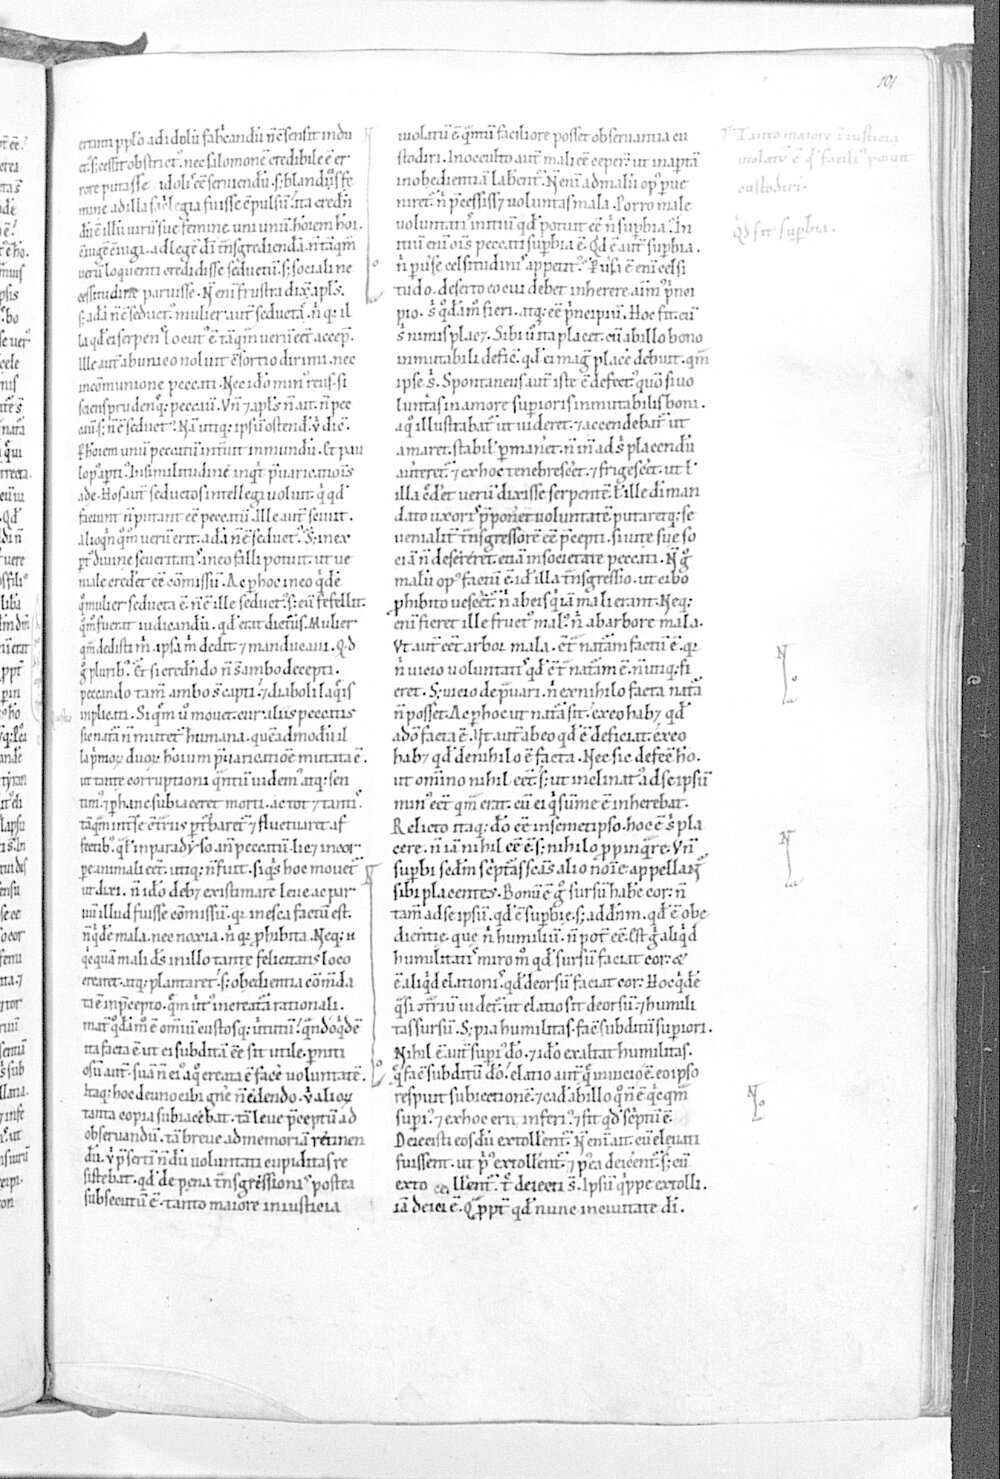 101
erranti pplo ad idolū fabͥcandū n̄ ꝯsensit indu
ct᷒ s; cessit obstrict᷒. nec salomonē credibile ē er
rore putasse idolis eē seruiendū. s; blanditiis fe
mineis ad illa sacͥlegia fuisse cōpulsū. ita credn̄
dū ē illū uirū sue femine uni unū. hoīem hoī.
ꝯiugē ꝯiugi. ad legē dī tͣnsgrediendā. n̄ tāqͣm
uerū loquenti credidisse seductū. s; sociali ne
cessitudine paruisse. N̄ enī frustra dix̄ apl̄s.
s; adā n̄ ē seduct᷒. mulier aut̄ seductā. n̄ qͥ il
la qd̄ ei serpens locut᷒ ē tāqͣm uerū eēt accep̄.
Ille aut̄ ab unico noluit ꝯsortio dirimi. nec
in cōmunione peccati. Nec idō min᷒ reus. si
sciens prudensq; peccauit. Vn̄ ⁊ apl̄s n̄ ait. n̄ pec
cauit. s; n̄ ē seduct᷒. Nā utiq; ipsū ostend. ubi dic̄.
ꝑ hoīem unū peccatū intͣuit in mundū. Et pau
lo p᷒ aꝑti᷒. In similitudinē inqͥt ꝑuaricatiois
ade. Hos aut̄ seductos intellegi uoluit. qͥ qd̄
faciunt n̄ putant eē peccatū. Ille aut̄ sciuit.
alioqͥn qͦm uerū erit. adā n̄ ē seduct᷒. S; inex
ꝑt᷒ diuine seueritatis. in eo falli potuit. ut ue
niale crederet eē cōmissū. Ac ꝑ hoc in eo qͥdē
qͦ mulier seducta ē. n̄ ē ille seduct᷒. s; eū fefellit.
qͦm fuerat iudicandū. qd̄ erat dictur᷒. Mulier
qͣm dedisti m̄. ipsa m̄ dedit. ⁊ manducaui. Qd
gͦ pluribꝰ. Et si credendo n̄ sū ambo decepti.
peccando tam̄ ambo sū capti. ⁊ diaboli laqͥs
inplicati. Si qͣm u̅ mouet. cur aliis peccatis
sic natā n̄ mutet᷒ humana. quēadmodū il
la pͥmoꝝ duoꝝ hoīum ꝑuaricatiōe mutata ē.
ut tante corruptioni qͣntū uidem᷒. atq; sen
tim᷒. ⁊ ꝑ hanc subiaceret morti. ac tot ⁊ tantis
tāqͣm int̄ se ꝯtͣriis ꝑt᷒baret᷒ ⁊ fluctuaret af
fectibꝰ. qͣlis in paradyso. an̄ peccatū. lic; in corꝑ
pe animali eēt. utiq; n̄ fuit. si qͥs hoc mouet᷒
ut dixi. n̄ idō deb; existimare leue ac par
uū illud fuisse cōmissū. qͥ in esca factū est.
n̄ qͥdē mala. nec noxia. n̄ qͥ ꝓhibita. Neq; .n.
qͥcquā mali ds̄ in illo tante felicitatis loco
crearet. atq; plantaret. s; obedientia cōmda
ta ē in p̄cepto. qͣm uirt᷒ in creatā rationali.
mat᷒ qͦdāmͦ ē omniū custosq; uirtutū. qͣndo qͥdē
ita facta ē ut ei subditā eē sit utile. ꝑniti
osū aut̄. suā n̄ ei᷒ a qͦ creata ē facē uoluntatē.
Itaq; hoc de uno cibi gn̄e n̄ edendo. ubi alioꝝ
tanta copia subiacebat. tā leue p̄ceptū ad
obseruandū. tā breue ad memoriā retinen
dū. ubi p̄sertī n̄dū uoluntati cupiditas re
sistebat. qd̄ de pena tͣnsgressionis postea
subsecutū ē. tanto maiore iniusticia
uiolatū ē qͣntū faciliore posset obseruantia cu
stodiri. In occulto aut̄ mali eē ceper̄. ut in aꝑtā
inobedientiā laberent᷒. N̄ enī ad malū op᷒ ꝑue
niret᷒. n̄ p̄cessiss; uoluntas mala. Porro male
uoluntatis initiū qd̄ potuit eē n̄ suꝑbia. In
itiū enī oīs peccati suꝑbia ē. Qd ē aut̄ suꝑbia.
n̄ ꝑuse celsitudinis appetit᷒. Ꝑusa ē enī celsi
tudo. deserto eo cui debet inherere aīm᷒ pͥnci
pio. sͥ qͦdāmͦ fieri. atq; eē pͥncipiū. Hoc fit. cū
sͥ nimis plac;. Sibi u̅ ita placet. cū ab illo bono
inmutabili defic̄. qd̄ ei magͥ placē debuit. qͣm
ipse sͥ. Spontaneus aut̄ iste ē defect᷒. quō si uo
luntas in amore suꝑioris inmutabilis boni.
a qͦ illustrabat᷒ ut uideret. ⁊ accendebat᷒ ut
amaret. stabilis ꝑmanet᷒. n̄ in ad sͥ placendū
auꝑeret᷒. ⁊ ex hoc tenebresceret. ⁊ frigesceret. ut ł
illa cͦderet uerū dixisse serpentē. ł ille dī man
dato uxoris p̄poneret uoluntatē. putaretq; se
uenialit̄ tͣnsgressorē eē p̄cepti. si uite sue so
ciā n̄ desereret. etiā in societate peccati. N̄ gͦ
malū op᷒ factū ē. id ē illa tͣnsgressio. ut cibo
ꝓhibito uescerent᷒. n̄ ab eis qͥ iā mali erant. Neq;
enī fieret ille fruct᷒ mal᷒. n̄ ab arbore mala.
Vt aut̄ eēt arbor mala. ꝯtͣ natam factū ē. qͥ
n̄ uicio uoluntatis qd̄ ꝯtͣ natam ē. n̄ utiq; fi
eret. S; uicio dep̄uari. n̄ ex nihilo facta natͣ
n̄ posset. Ac ꝑ hoc ut natͣ sit. ex eo hab; qd̄
a dō facta ē. Vt aut̄ ab eo qd̄ ē deficiat. ex eo
hab; qd̄ de nihilo ē facta. Nec sic defec̄ hō.
ut omīno nihil eēt. s; ut inclinat᷒ ad se ipsū
min᷒ eēt qͣm erat. cū ei qͥ sūme ē inherebat.
Relicto itaq; dō. eē in semetipso. hoc ē sͥ pla
cere. n̄ iā nihil eē ē. s; nihilo ꝓpinqͣre. Vn̄
suꝑbi scdm̄ sc̄pturas sc̄as. alio noīe appellant᷒
sibi placentes. Bonū ē gͦ sursū habere cor. n̄
tam̄ ad se ipsū. qd̄ ē suꝑbie. s; ad dn̄m. qd̄ ē obe
dientie. que n̄ humiliū. n̄ pot̄ eē. Est gͦ aliqͥd
humilitatis miro mͦ qd̄ sursū faciat cor. &
ē aliqͥd elationis. qd̄ deorsū faciat cor. Hoc qͥdē
qͣsi ꝯtͣriū uidet᷒. ut elatio sit deorsū. ⁊ humili
tas sursū. S; pia humilitas. facit subditū suꝑiori.
Nihil ē aut̄ suꝑi᷒ dō. ⁊ idō exaltat humilitas.
qͥ facit subditū dō. elatio aut̄ qͥ in uicio ē. eo ipso
respuit subiectionē. ⁊ cadit ab illo qͦ n̄ ē qͥcqͣm
suꝑi᷒. ⁊ ex hoc erit inferi᷒. ⁊ fit qd sc̄ptū ē.
Deiecisti eos dū extollerent᷒. N̄ enī ait. cū eleuati
fuissent. ut p᷒ extollerent᷒. ⁊ p᷒ea deicerent᷒. s; cū
exto llerent᷒. tc̄ deiecti s̄. Ipsū qͥppe extolli.
iā deici ē. Qͣꝓpt̄ qd̄ nunc in ciuitate dī.
Tanto maiore iniusticia
uiolatū ē qͣnto facili᷒ potuit
custodiri.
Qd sit suꝑbia.